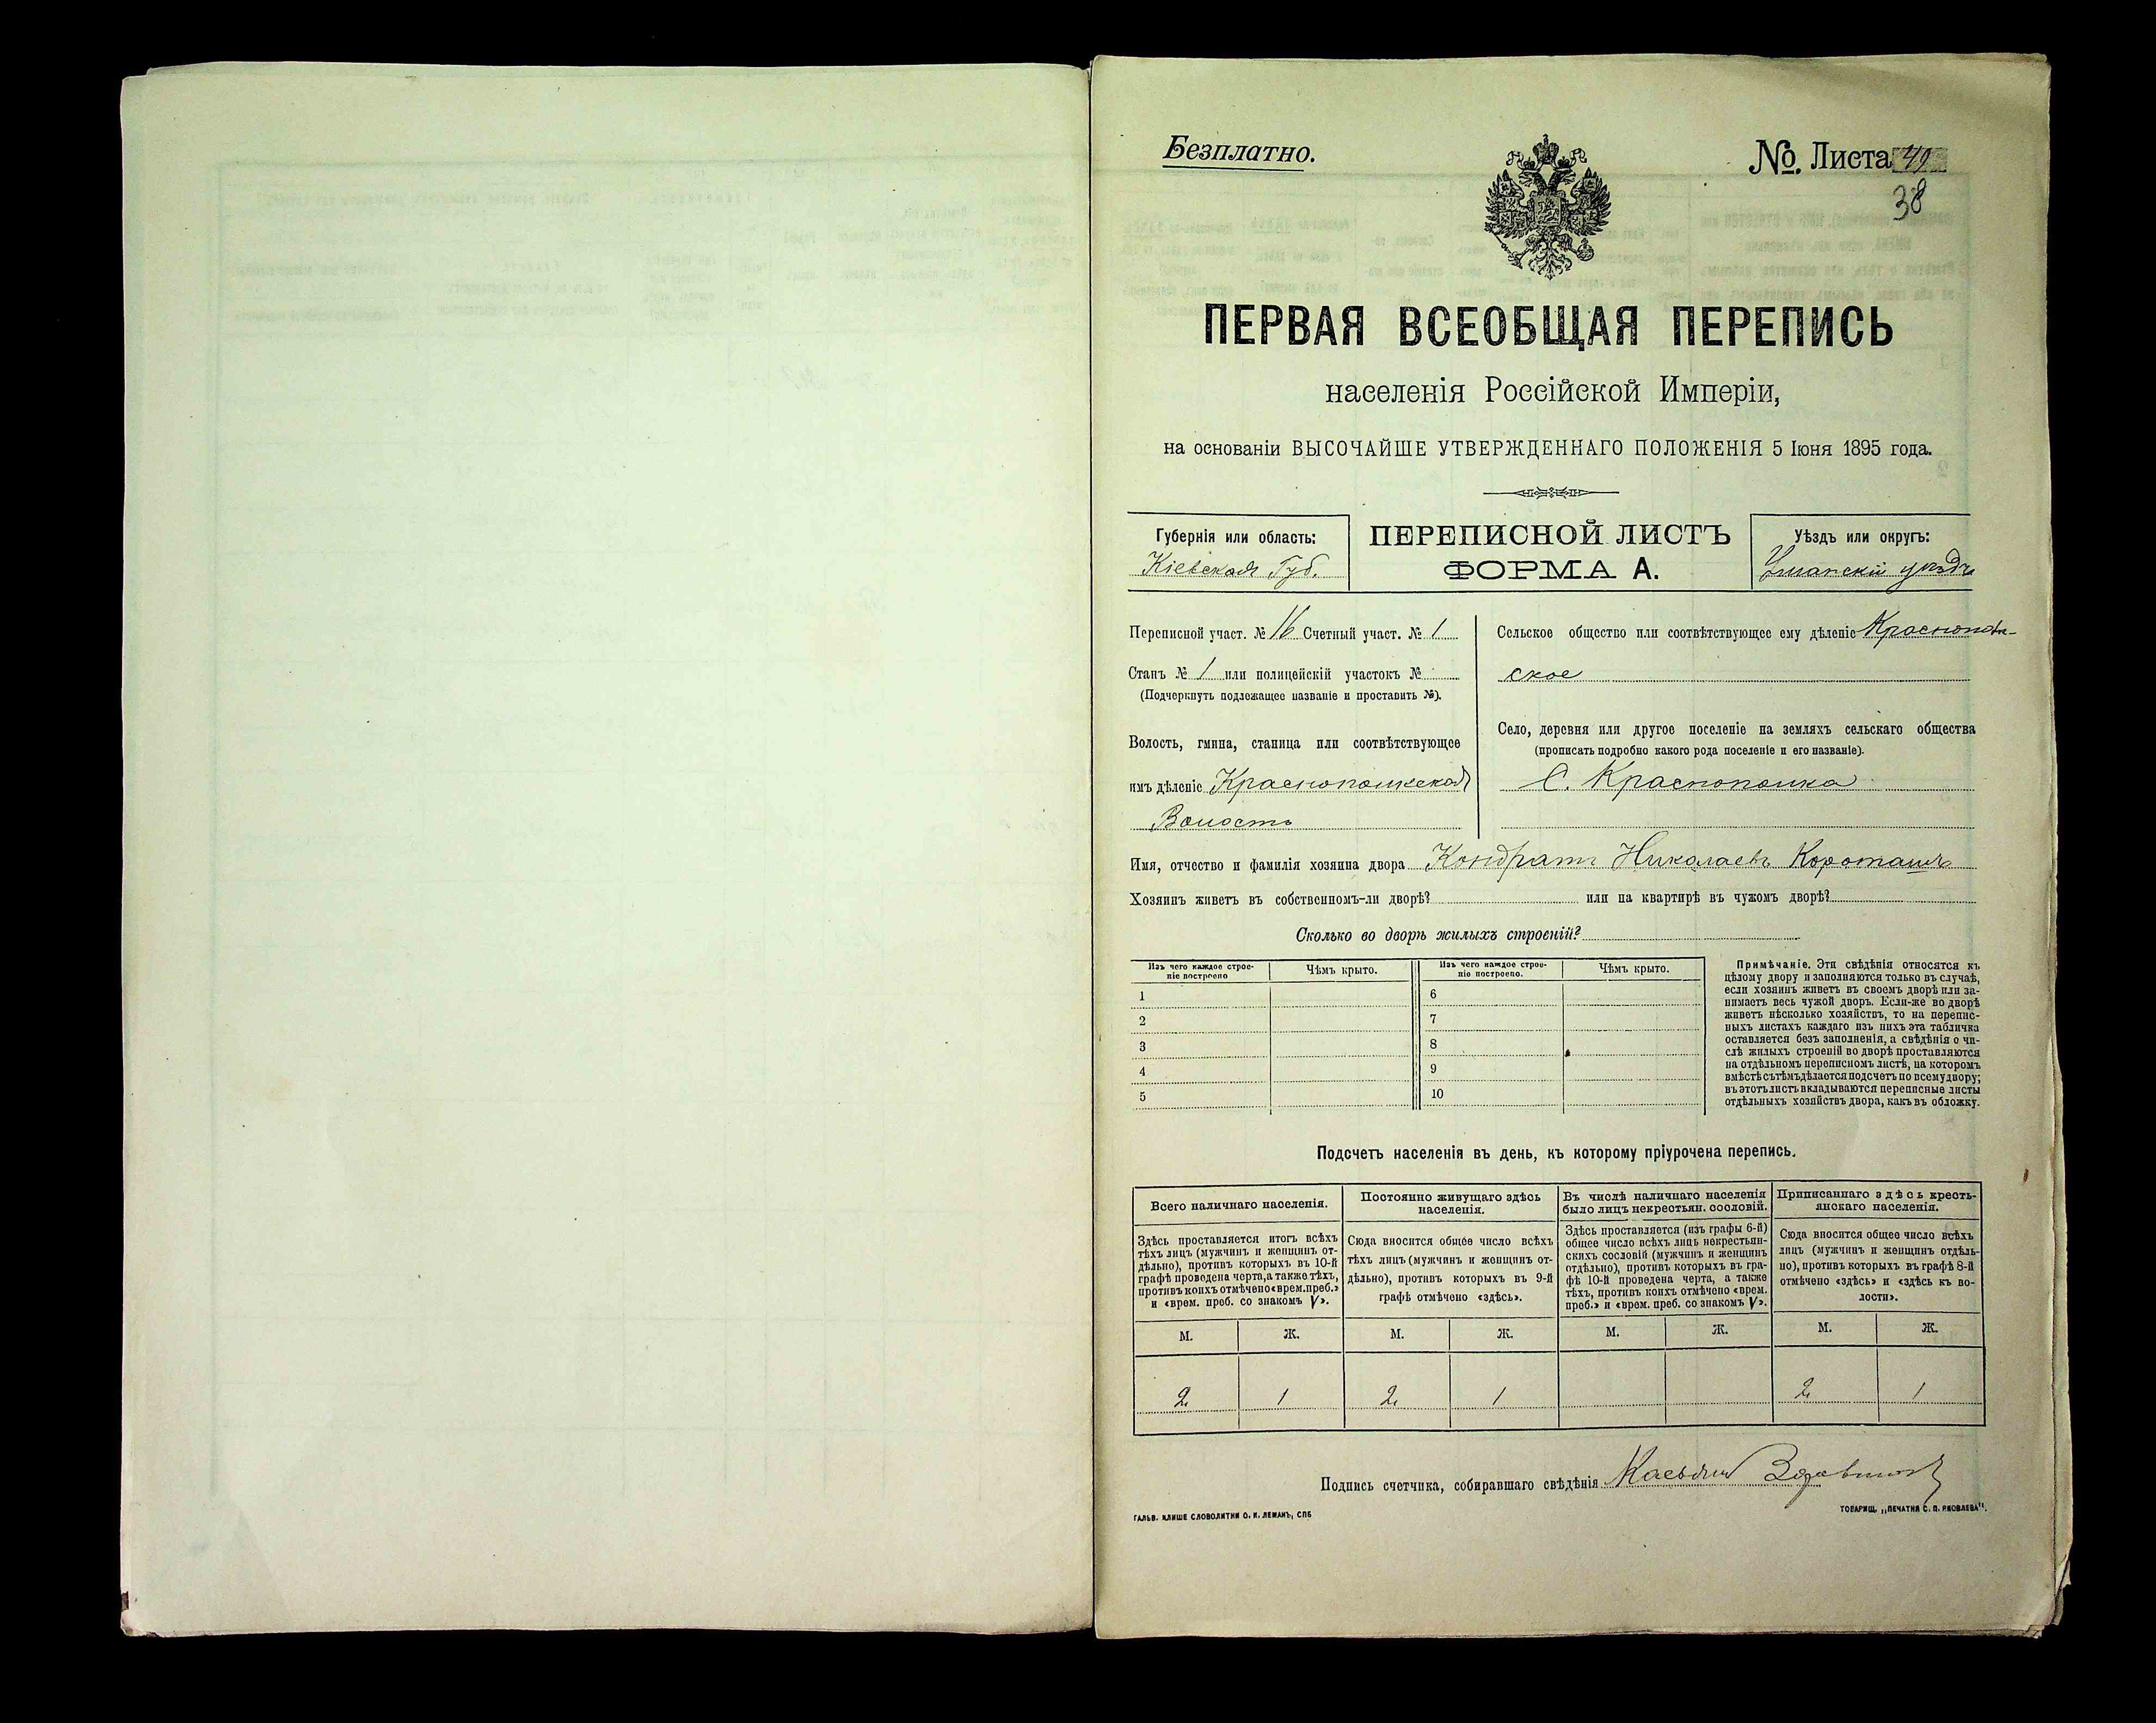 Безплатно.
№. Листа 49
38
ПЕРВАЯ ВСЕОБЩАЯ ПЕРЕПИСЬ
населенія Россійской Имперіи,
на основаніи ВЫСОЧАЙШЕ УТВЕРЖДЕННАГО ПОЛОЖЕНІЯ 5 Іюня 1895 года.
Губернія или область:
Кіевская Губ.
ПЕРЕПИСНОЙ ЛИСТЪ
ФОРМА А.
Уѣздъ или округъ:
Уманскій уѣздъ
Переписной участ. № 16 Счетный участ. № 1
Станъ № 1 или полицейскій участокъ №
(Подчеркнуть подлежащее названіе и проставить №).
Волость, гмина, станица или соотвѣтствующее
имъ дѣленіе Краснополкская
Волость
Сельское общество или соотвѣтствующее ему дѣленіе Краснопол-
ское
Село, деревня или другое поселеніе на земляхъ сельскаго общества
(прописать подробно какого рода поселеніе и его названіе).
С. Краснополка
Имя, отчество и фамилія хозяина двора Кондратъ Николаевъ
Хозяинъ живетъ въ собственномъ-ли дворѣ? или на квартирѣ въ чужомъ дворѣ?
Сколько во дворѣ жилыхъ строеній?
Изъ чего каждое строе-
ніе построено
Чѣмъ крыто.
Изъ чего каждое строе-
ніе построено.
Чѣмъ крыто.
1 6
2 7
3 8
4 9
5 10
Примѣчаніе. Эти свѣдѣнія относятся къ
цѣлому двору и заполняются только въ случаѣ,
если хозяинъ живетъ въ своемъ дворѣ или за-
нимаетъ весь чужой дворъ. Если-же во дворѣ
живетъ нѣсколько хозяйствъ, то на перепис-
ныхъ листахъ каждаго изъ нихъ эта табличка
оставляется безъ заполненія, а свѣдѣнія о чи-
слѣ жилыхъ строеній во дворѣ проставляются
на отдѣльномъ переписномъ листѣ, на которомъ
вмѣстѣ съ тѣмъ дѣлается подсчетъ по всему двору;
въ этотъ листъ вкладываются переписные листы
отдѣльныхъ хозяйствъ двора, какъ въ обложку.
Подсчетъ населенія въ день, къ которому пріурочена перепись.
Всего наличнаго населенія.
Здѣсь проставляется итогъ всѣхъ
тѣхъ лицъ (мужчинъ и женщинъ от-
дѣльно), противъ которыхъ въ 10-й
графѣ проведена черта, а также тѣхъ,
противъ коихъ отмѣчено «врем. преб.»
и «врем. преб. со знакомъ V».
Постоянно живущаго здѣсь
населенія.
Сюда вносится общее число всѣхъ
тѣхъ лицъ (мужчинъ и женщинъ от-
дѣльно), противъ которыхъ въ 9-й
графѣ отмѣчено «здѣсь».
Въ числѣ наличнаго населенія
было лицъ некрестьян. сословій.
Здѣсь проставляется (изъ графы 6-й)
общее число всѣхъ лицъ некрестьян-
скихъ сословій (мужчинъ и женщинъ
отдѣльно), противъ которыхъ въ гра-
фѣ 10-й проведена черта, а также
тѣхъ, противъ коихъ отмѣчено «врем.
преб.» и «врем. преб. со знакомъ V».
Приписаннаго здѣсь кресть-
янскаго населенія.
Сюда вносится общее число всѣхъ
лицъ (мужчинъ и женщинъ отдѣль-
но), противъ которыхъ въ графѣ 8-й
отмѣчено «здѣсь» и «здѣсь къ во-
лости».
М. Ж. М. Ж. М. Ж. М. Ж.
2 1 2 1 2 1
Подпись счетчика, собиравшаго свѣдѣнія
ГАЛЬВ. КЛИШЕ СЛОВОЛИТНИ О. И. ЛЕМАНЪ, СПБ
ТОВАРИЩ. „ПЕЧАТНЯ С. П. ЯКОВЛЕВА".